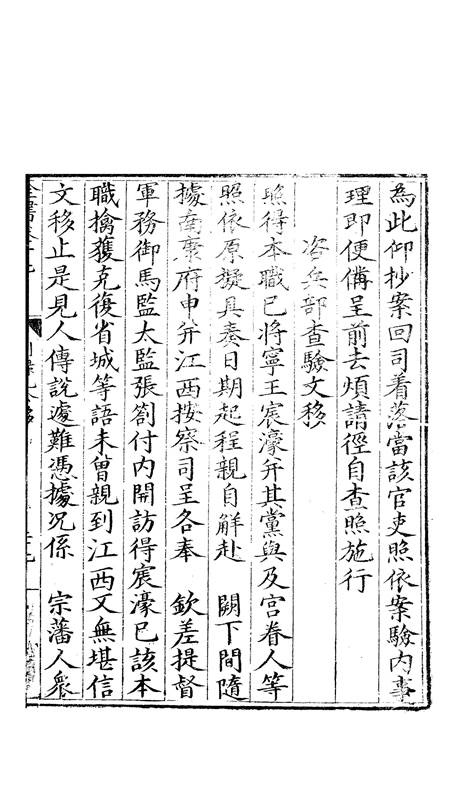 為此仰抄案回司着落當該官吏照依案驗內事
理即便備呈前去煩請徑自查照施行
咨兵部查驗文移
照得本職已將寧王宸濠并其黨與及宮眷人等
照依原擬具奏日期起程親自解赴　闕下間隨
據南康府申并江西按察司呈各奉　欽差提督
軍務御馬監太監張劄付內開訪得宸濠已該本
職擒獲克復省城等語未曾親到江西又無堪信
文移止是見人傳說遽難憑據況係　宗藩人衆